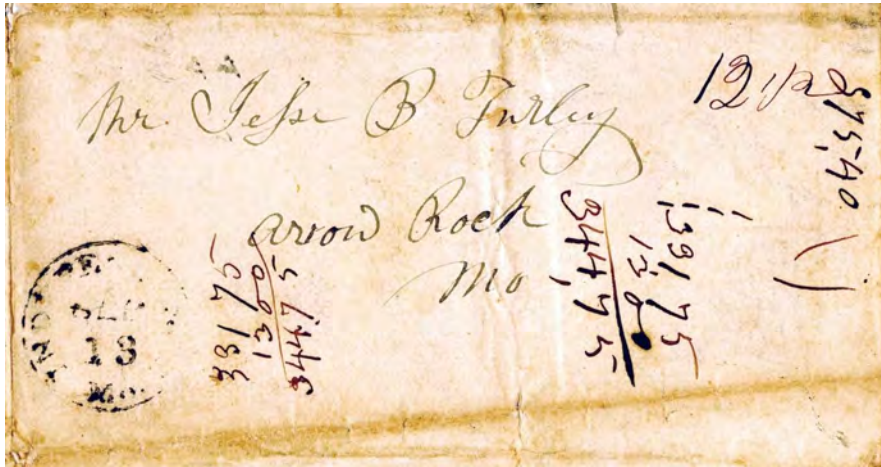 Mr. Jesse B Turley
Arrow Rock
Mo
12 1/2
57540
33175
1300
34475
33175
1300
34475
13
Mo.